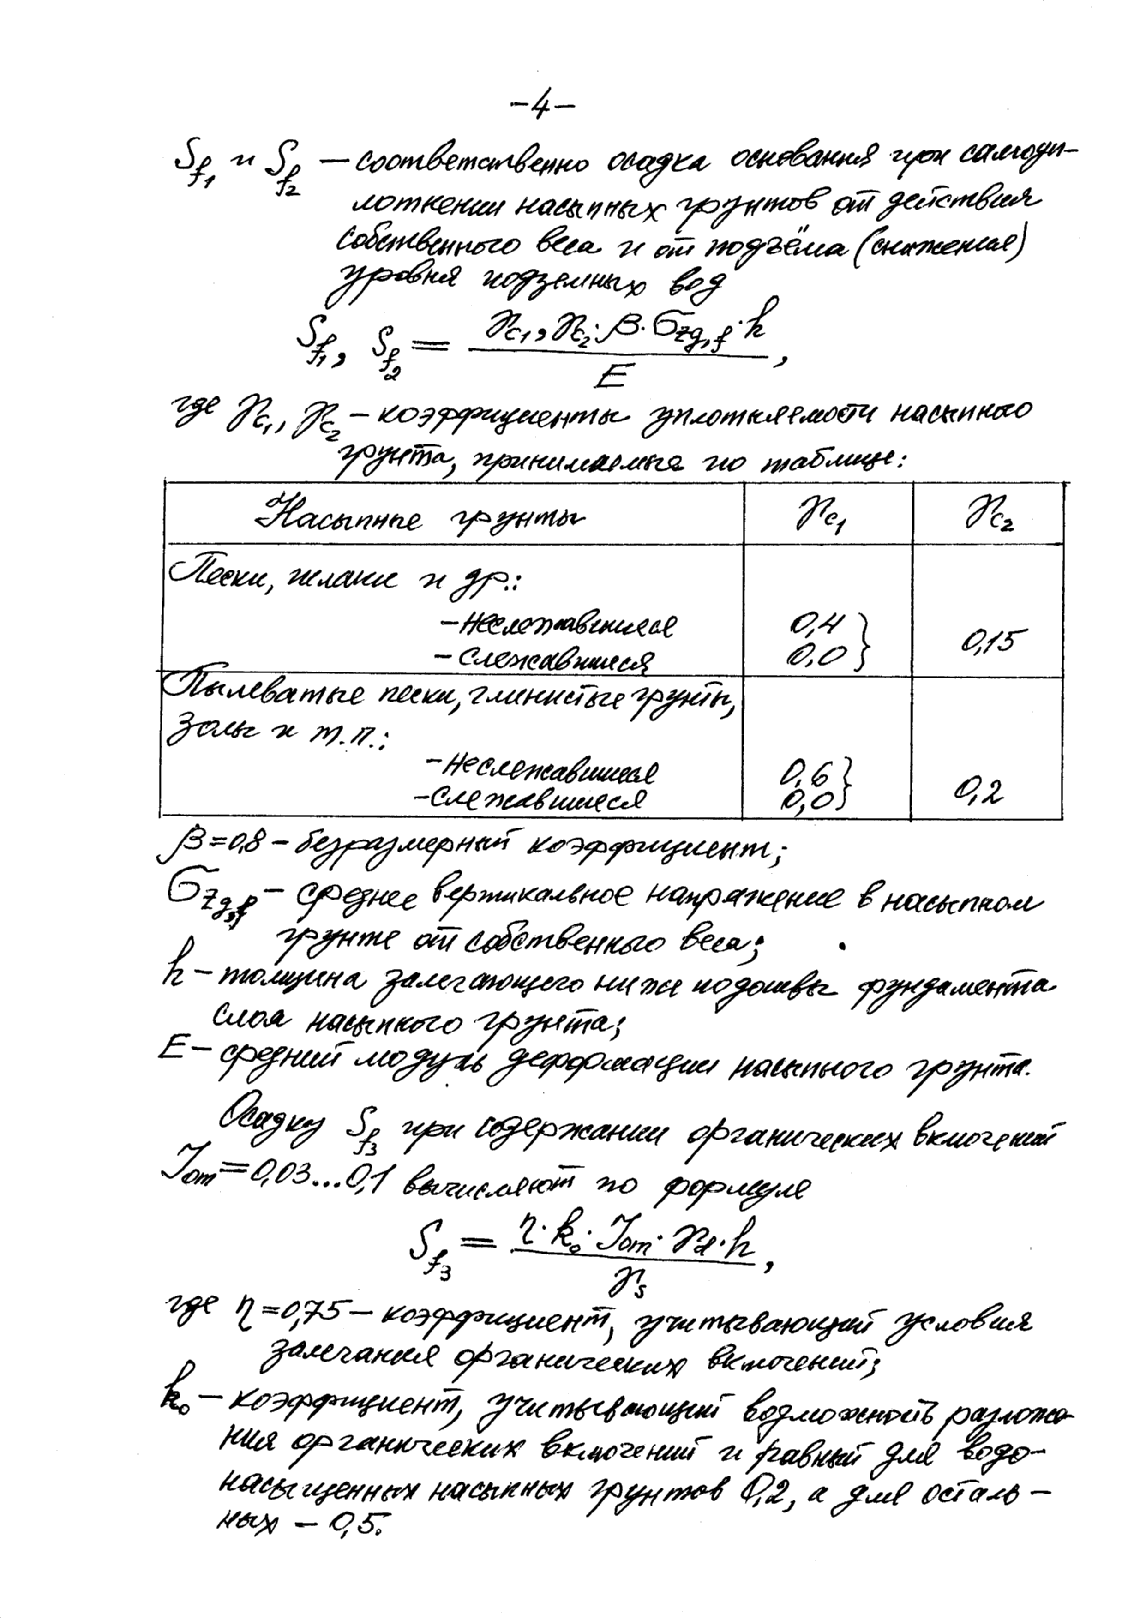 –4–
S_f1 и S_f2 – соответственно осадка основания при самоуп-
лотнении насыпных грунтов от действия
собственного веса и от подъёма (снижения)
уровня подземных вод
S_f1, S_f2 = γ_c1, γ_c2 · β · σ_zg,f · h / E,
где γ_c1, γ_c2 – коэффициенты уплотняемости насыпного
грунта, принимаемые по таблице:
Насыпные грунты γ_c1 γ_c2
Пески, шлаки и др.:
– неслежавшиеся 0,4 }
– слежавшиеся 0,0 } 0,15
Пылеватые пески, глинистые грунты,
золы и т.п.:
– неслежавшиеся 0,6 }
– слежавшиеся 0,0 } 0,2
β = 0,8 – безразмерный коэффициент;
σ_zg,f – среднее вертикальное напряжение в насыпном
грунте от собственного веса;
h – толщина залегающего ниже подошвы фундамента
слоя насыпного грунта;
E – средний модуль деформации насыпного грунта.
Осадку S_f3 при содержании органических включений
J_om = 0,03...0,1 вычисляют по формуле
S_f3 = η · k_o · J_om · γ_d · h / γ_s,
где η = 0,75 – коэффициент, учитывающий условия
залегания органических включений;
k_o – коэффициент, учитывающий возможность разложе-
ния органических включений и равный для водо-
насыщенных насыпных грунтов 0,2, а для осталь-
ных – 0,5.